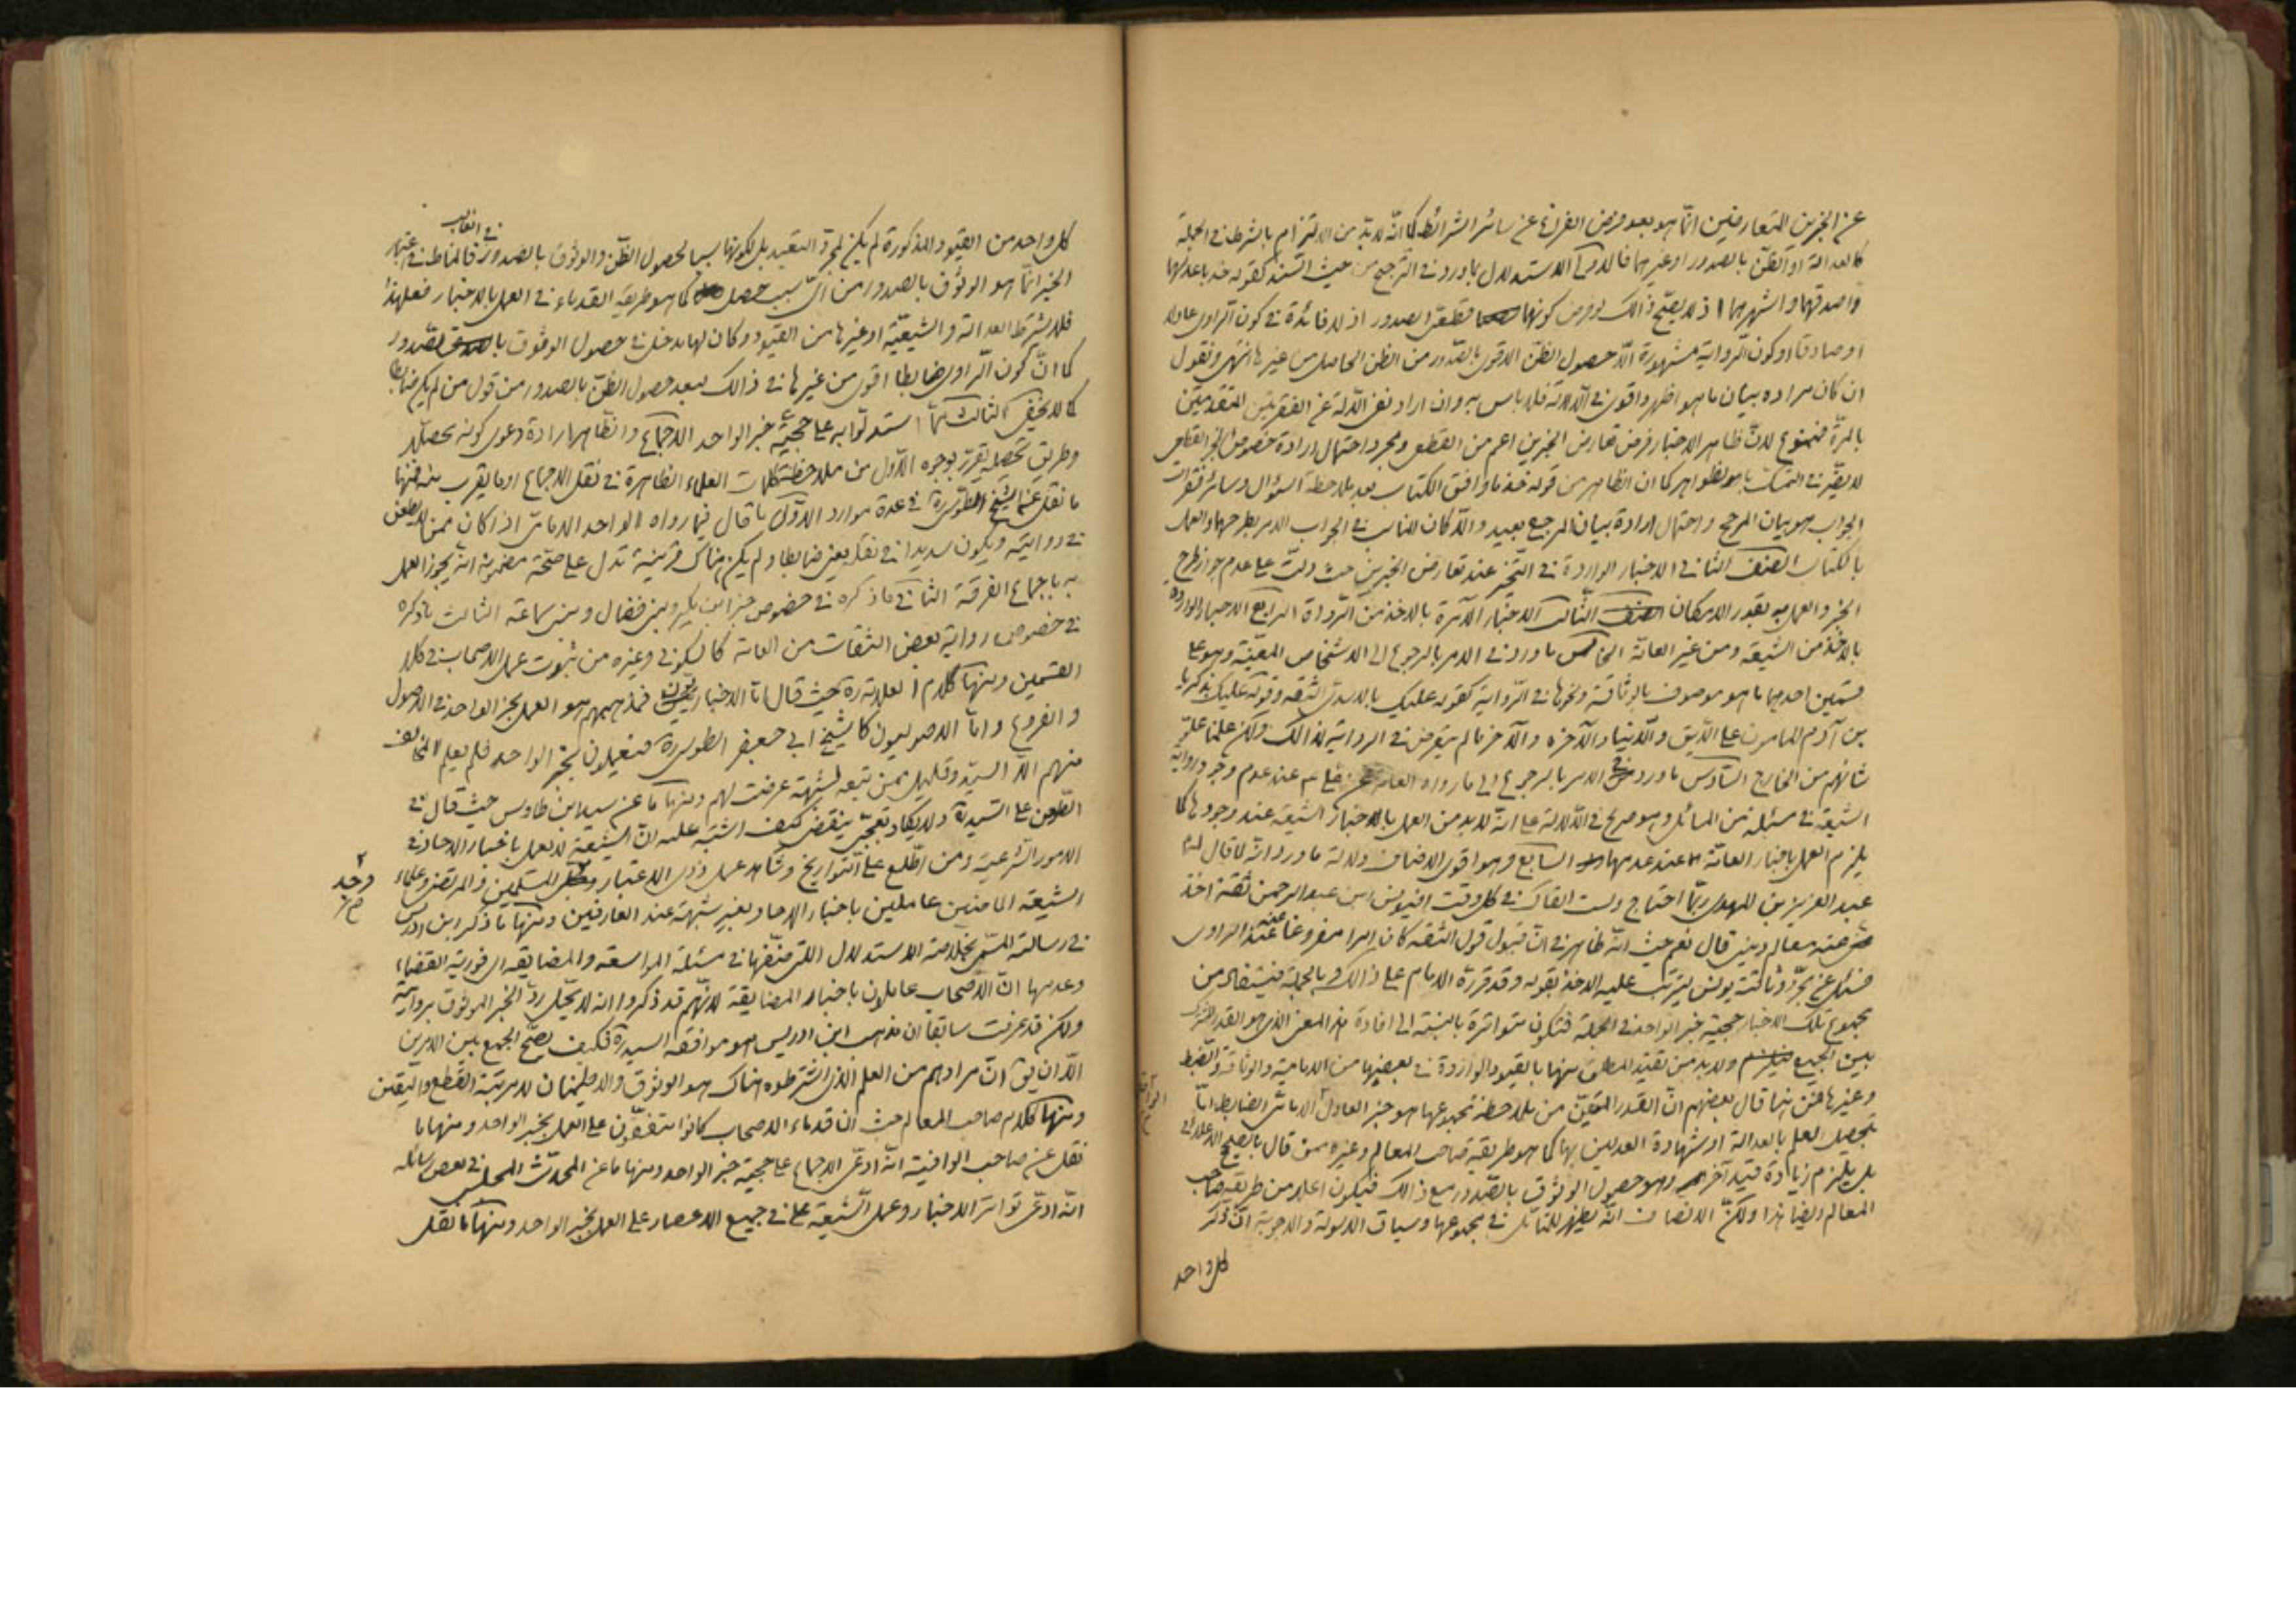 عن الخبرين المتعارضين انّما هو بعد فرض الفراغ عن سائر الشرائط كما انّه لا بدّ من الالتزام بالشرط في الجملة
كالعدالة او الظنّ بالصدور او غيرهما فالاولى الاستدلال بما ورد في الترجيح من حيث السند كقوله خذ باعدلهما
واصدقهما واشهرهما اذ لا يصحّ ذالك لو فرض كونهما قطعي الصدور اذ لا فائدة في كون الراوي عادلا
او صادقا او كون الرواية مشهورة الّا حصول الظنّ الاقوى بالصّدور من الظن الحاصل من غيرها انتهى ونقول
ان كان مراده بيان ما هو اظهر واقوى في الدلالة فلا باس به وان اراد نفي الدّلالة عن الفقرتين المتقدمتين
بالمرّة فممنوع لانّ ظاهر الاخبار فرض تعارض الخبرين اعم من القطعي ومجرد احتمال ارادة خصوص الخبر القطعي
لا يضرّ في التمسّك بالظواهر كما ان الظاهر من قوله خذ ما وافق الكتاب بعد ملاحظة السؤال وسائر فقرات
الجواب هو بيان المرجح واحتمال ارادة بيان المرجع بعيد والّا كان المناسب في الجواب الامر بطرحهما والعمل
بالكتاب الصنف الثاني الاخبار الواردة في التخيّر عند تعارض الخبرين حيث دلّت على عدم جواز طرح
الخبر والعمل به بقدر الامكان الثالث الاخبار الآمرة بالاخذ من الرّواة الرابع الاخبار الواردة
بالاخذ من الشيعة ومن غير العامّة الخامس ما ورد في الامر بالرجوع الى الاشخاص المعيّنة وهو على
قسمين احدهما ما هو موصوف بالوثاقة ونحوها في الرّواية كقوله عليك بالاسدي الثقة وقوله عليك بزكريا
بن آدم المامون على الدّين والدّنيا والآخر ما لم يتعرض في الرواية لذالك ولكن علمنا علوّ
شانهم من الخارج السّادس ما ورد في الامر بالرجوع الى ما رواه العامة عن علي ع عند عدم وجود رواية
الشيعة في مسئلة من المسائل وهو صريح في الدّلالة على انّه لا بد من العمل بالاخبار الشيعة عند وجودها كما
يلزم العمل باخبار العامّة عند عدمها السابع وهو اقوى الاصناف دلالة ما ورد انّه لما قال له
عبد العزيز بن المهدي ربّما احتاج ولست القاك في كل وقت افيونس ابن عبد الرحمن ثقة اخذ
عنه معالم ديني قال نعم حيث انّه ظاهر في انّ قبول قول الثقة كان امرا مفروغا عنه عند الراوي
فسئل عن مجرّد وثاقة يونس ليترتّب عليه الاخذ بقوله وقد قررّه الامام على ذالك وبالجملة فيستفاد من
مجموع تلك الاخبار حجية خبر الواحد في الجملة فتكون متواترة بالنسبة الى افادة هذا المعنى الذي هو القدر المشترك
بين الجميع ولا بد من تقييد المطلق منها بالقيود الواردة في بعضها من الامامية والوثاقة والضّبط
وغيرها فمن ثمّا قال بعضهم انّ القدر المتيقّن من ملاحظة مجموعها هو خبر العادل الامامي الضابط امّا
بتحصيل العلم بالعدالة او شهادة العدلين بها كما هو طريقة صاحب المعالم وغيره ممن قال بالصحيح الاعلائي
بل يلزم زيادة قيد آخر وهو حصول الوثوق بالصّدور مع ذالك فيكون اعلى من طريقة صاحب
المعالم ايضا هذا ولكنّ الانصاف انّه يظهر للمتأمّل في مجموعها وسياق الاسولة والاجوبة انّ ذكر
كل واحد
كل واحد من القيود المذكورة لم يكن لمجرّد التعبّد بل لكونها سببا لحصول الظّن والوثوق بالصدور في الغالب فالمناط في اعتبار
الخبر انّما هو الوثوق بالصدور من ايّ سبب حصل كما هو طريقة القدماء في العمل بالاخبار فعلى هذا
فلا يشترط العدالة والشيعيّة او غيرها من القيود وكان لها مدخل في حصول الوثوق بالصّدور
كما انّ كون الرّاوي ضابطا اقوى من غيرها في ذالك لبعد حصول الظنّ بالصدور من قول من لم يكن ضابطا
كما لا يخفى الثالث ممّا استدلّوا به على حجيّة خبر الواحد الاجماع والظاهر ارادة دعوى كونه محصّلا
وطريق تحصيله يقرّر بوجوه الاوّل من ملاحظة كلمات العلماء الظاهرة في نقل الاجماع او ما يقرب منه فمنها
ما نقل عن الشيخ الطّوسي ره في عدة موارد الاوّل ما قال فيما رواه الواحد الامامي اذا كان ممن لا يطعن
في روايته ويكون سديدا في نقله يعني ضابطا ولم يكن هناك قرينة تدل على صحّة مضمونه انه يجوز العمل
به باجماع الفرقة الثاني ما ذكره في خصوص خبر ابن بكير وبني فضال وبني سماعة الثالث ما ذكره
في خصوص رواية بعض الثقات من العامة كالسكوني وغيره من ثبوت عمل الاصحاب في كلا
القسمين ومنها كلام العلامة ره حيث قال امّا الاخباريّون فمذهبهم هو العمل بخبر الواحد في الاصول
والفروع وامّا الاصوليون كالشيخ ابي جعفر الطوسي ره فيعملون بخبر الواحد فلم يعلم المخالف
منهم الّا السيّد وقليل ممن تبعه لشبهة عرضت لهم ومنها ما عن سيد ابن طاوس حيث قال في
الطّعن على السّيد ره ولا يكاد تعجّبي ينقضي كيف اشتبه عليه انّ الشيعة لا يعمل باخبار الاحاد في
الامور الشرعية ومن اطّلع على التّواريخ وشاهد عمل ذوى الاعتبار وجد المسلمين والمرتضى وعلماء
الشيعة الماضين عاملين باخبار الاحاد بغير شبهة عند العارفين ومنها ما ذكر ابن ادريس
في رسالته المسمّى بخلاصة الاستدلال التي صنّفها في مسئلة المواسعة والمضايقة اى فورية القضاء
وعدمها انّ الاصحاب عاملون باخبار المضايقة لانّهم قد ذكروا انه لا يحلّ ردّ الخبر الموثوق بروايته
ولكن قد عرفت سابقا ان مذهب ابن ادريس هو موافقة السيد ره فكيف يصحّ الجمع بين الامرين
الّا ان يق انّ مرادهم من العلم الذي اشترطوه هناك هو الوثوق والاطمينان لا مرتبة القطع واليقين
ومنها كلام صاحب المعالم حيث ان قدماء الاصحاب كانوا متفقّين على العمل بخبر الواحد ومنها ما
نقل عن صاحب الوافية انّه ادعى الاجماع على حجية خبر الواحد ومنها ما عن المحدّث المجلسي في بعض رسائله
انّه ادعى تواتر الاخبار وعمل الشّيعة في جميع الاعصار على العمل بخبر الواحد ومنها ما نقل
وجد